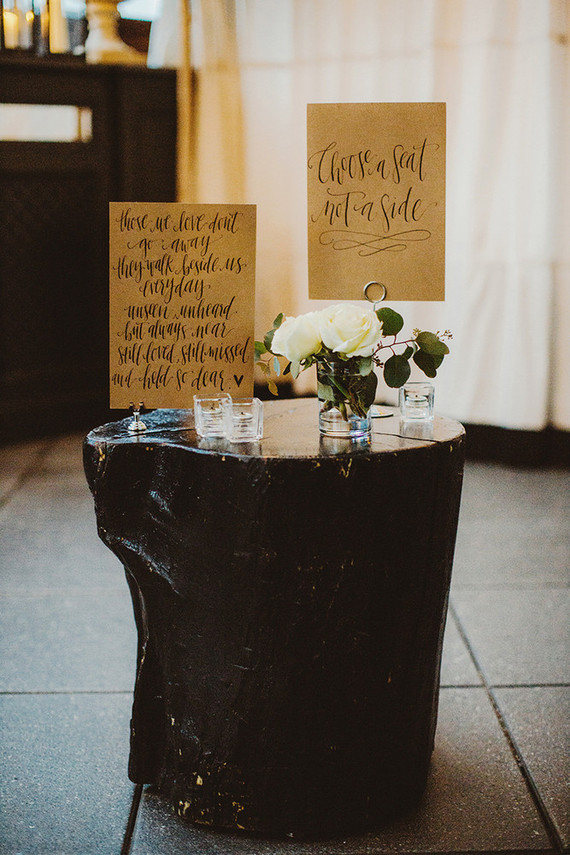 those we love don't
go away
they walk beside us
everyday
unseen, unheard
but always near
still loved, still missed
and held so dear
Choose a Seat
not a side